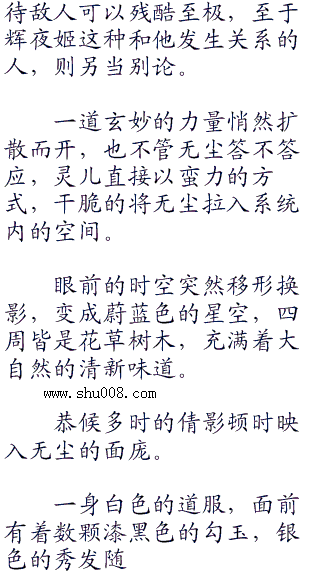 待敌人可以残酷至极，至于
辉夜姬这种和他发生关系的
人，则另当别论。
一道玄妙的力量悄然扩
散而开，也不管无尘答不答
应，灵儿直接以蛮力的方
式，干脆的将无尘拉入系统
内的空间。
眼前的时空突然移形换
影，变成蔚蓝色的星空，四
周皆是花草树木，充满着大
自然的清新味道。
www.shu008.com
恭候多时的倩影顿时映
入无尘的面庞。
一身白色的道服，面前
有着数颗漆黑色的勾玉，银
色的秀发随